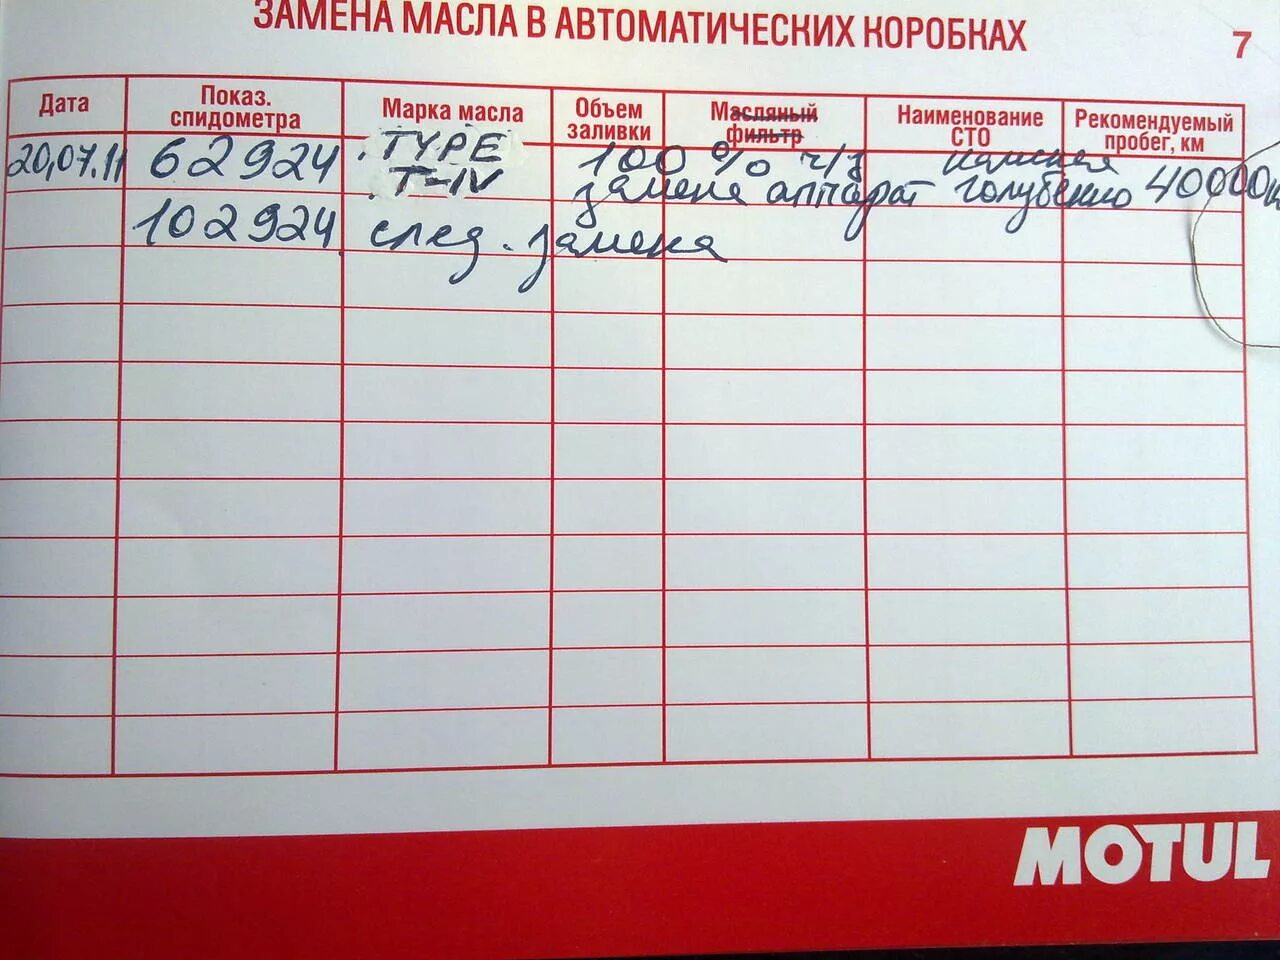 ЗАМЕНА МАСЛА В АВТОМАТИЧЕСКИХ КОРОБКАХ
7
Дата
Показ. спидометра
Марка масла
Объем заливки
Масляный фильтр
Наименование СТО
Рекомендуемый пробег, км
20,07.11 62924 TYPE T-IV 100% ч/з
замена аппарат 40000
102924 след. замена
MOTUL